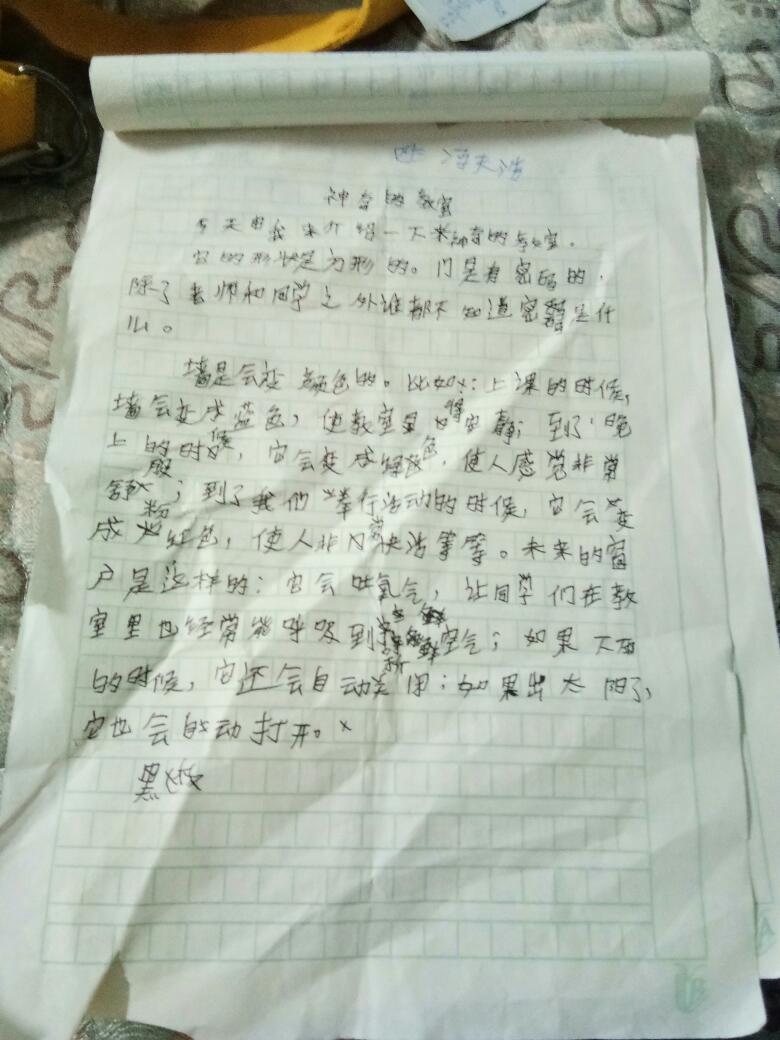 神奇的教室
今天由我来介绍一下未神奇的教室。
它的形状是方形的。门是有密码的。
除了老师和同学之外谁都不知道密码是什
么。
墙是会变颜色的。比如：上课的时候，
墙会变成蓝色，使教室里安静；到了晚
上的时候，它会变成绿色，使人感觉非常
舒服；到了我们举行活动的时候，它会变
成粉红色，使人非常快活等等。未来的窗
户是这样的：它会吐氧气，让同学们在教
室里也经常能呼吸到新鲜空气；如果下雨
的时候，它还会自动关闭；如果出太阳了，
它也会自动打开。
黑